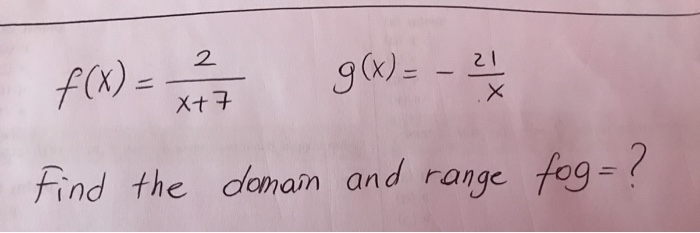 f(x) = 2/(x+7) g(x) = - 21/x
Find the domain and range fog = ?